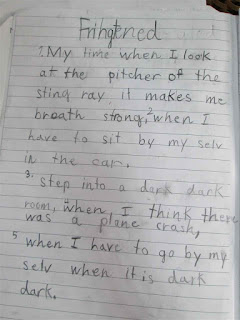 Frihgtened
1. My time when I look
at the pitcher of the
sting ray it makes me
breath strong, 2 when I
have to sit by my selv
in the car.
3. Step into a dark dark
room, 4 when I think there
was a plane crash,
5 when I have to go by my
selv when it is dark
dark.